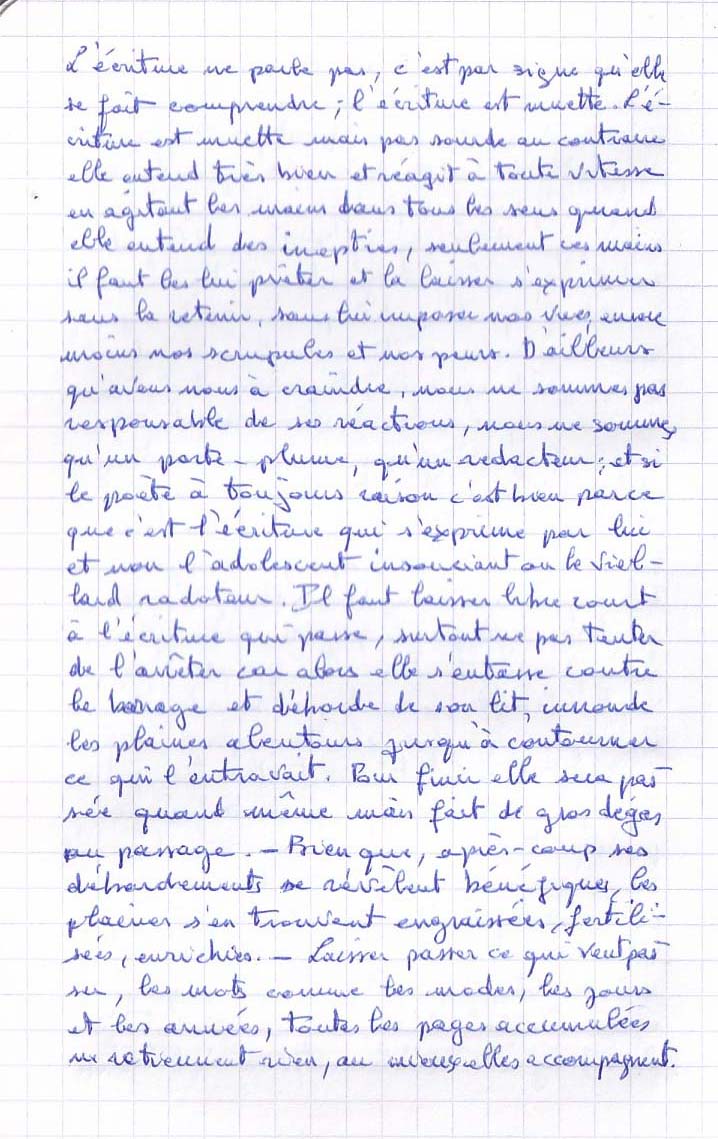 L'écriture ne parle pas, c'est par signe qu'elle
se fait comprendre ; l'écriture est muette. L'é-
criture est muette mais pas sourde au contraire
elle entend très bien et réagit à toute vitesse
en agitant les mains dans tous les sens quand
elle entend des inepties, seulement ces mains
il faut les lui prêter et la laisser s'exprimer
sans la retenir, sans lui imposer nos vues, encore
moins nos scrupules et nos peurs. D'ailleurs
qu'avons nous à craindre, nous ne sommes pas
responsable de ses réactions, nous ne sommes
qu'un porte-plume, qu'un rédacteur ; et si
le poète à toujours raison c'est bien parce
que c'est l'écriture qui s'exprime par lui
et non l'adolescent insouciant ou le viel-
lard radoteur. Il faut laisser libre court
à l'écriture qui passe, surtout ne pas tenter
de l'arrêter car alors elle s'entasse contre
le barrage et déborde de son lit, innonde
les plaines alentours jusqu'à contourner
ce qui l'entravait. Pour finir elle sera pas-
sée quand même mais fait de gros dégas
au passage. - Bien que, après-coup ses
débordements se révèlent bénéfiques, les
plaines s'en trouvent engraissées, fertili-
sées, enrichies. - Laisser passer ce qui veut pas-
ser, les mots comme les modes, les jours
et les années, toutes les pages accumulées
ne retiennent rien, au mieux elles accompagnent.